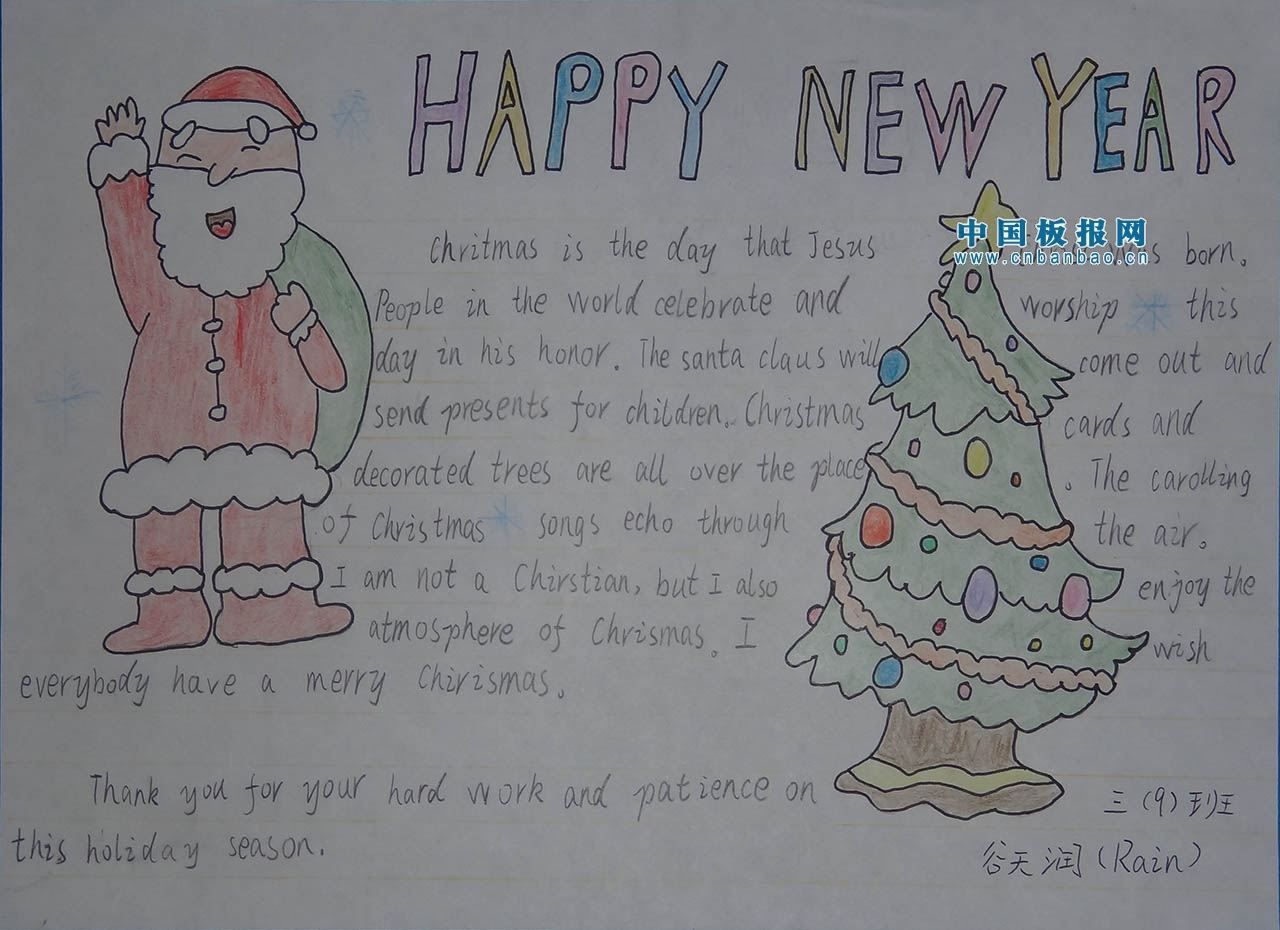 HAPPY NEW YEAR
中国板报网
www.cnbanbao.cn
Chritmas is the day that Jesus born.
People in the world celebrate and worship this
day in his honor. The santa claus will come out and
send presents for children. Christmas cards and
decorated trees are all over the place . The carolling
of Christmas songs echo through the air.
I am not a Chirstian, but I also enjoy the
atmosphere of Chrismas. I wish
everybody have a merry Chirismas.
Thank you for your hard work and patience on
this holiday season.
三（9）班
谷天润（Rain）